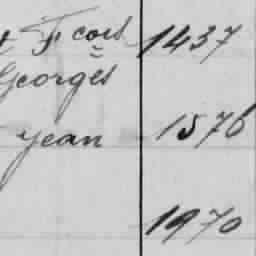 Fcois 1437
Georges
Jean 1576
1970